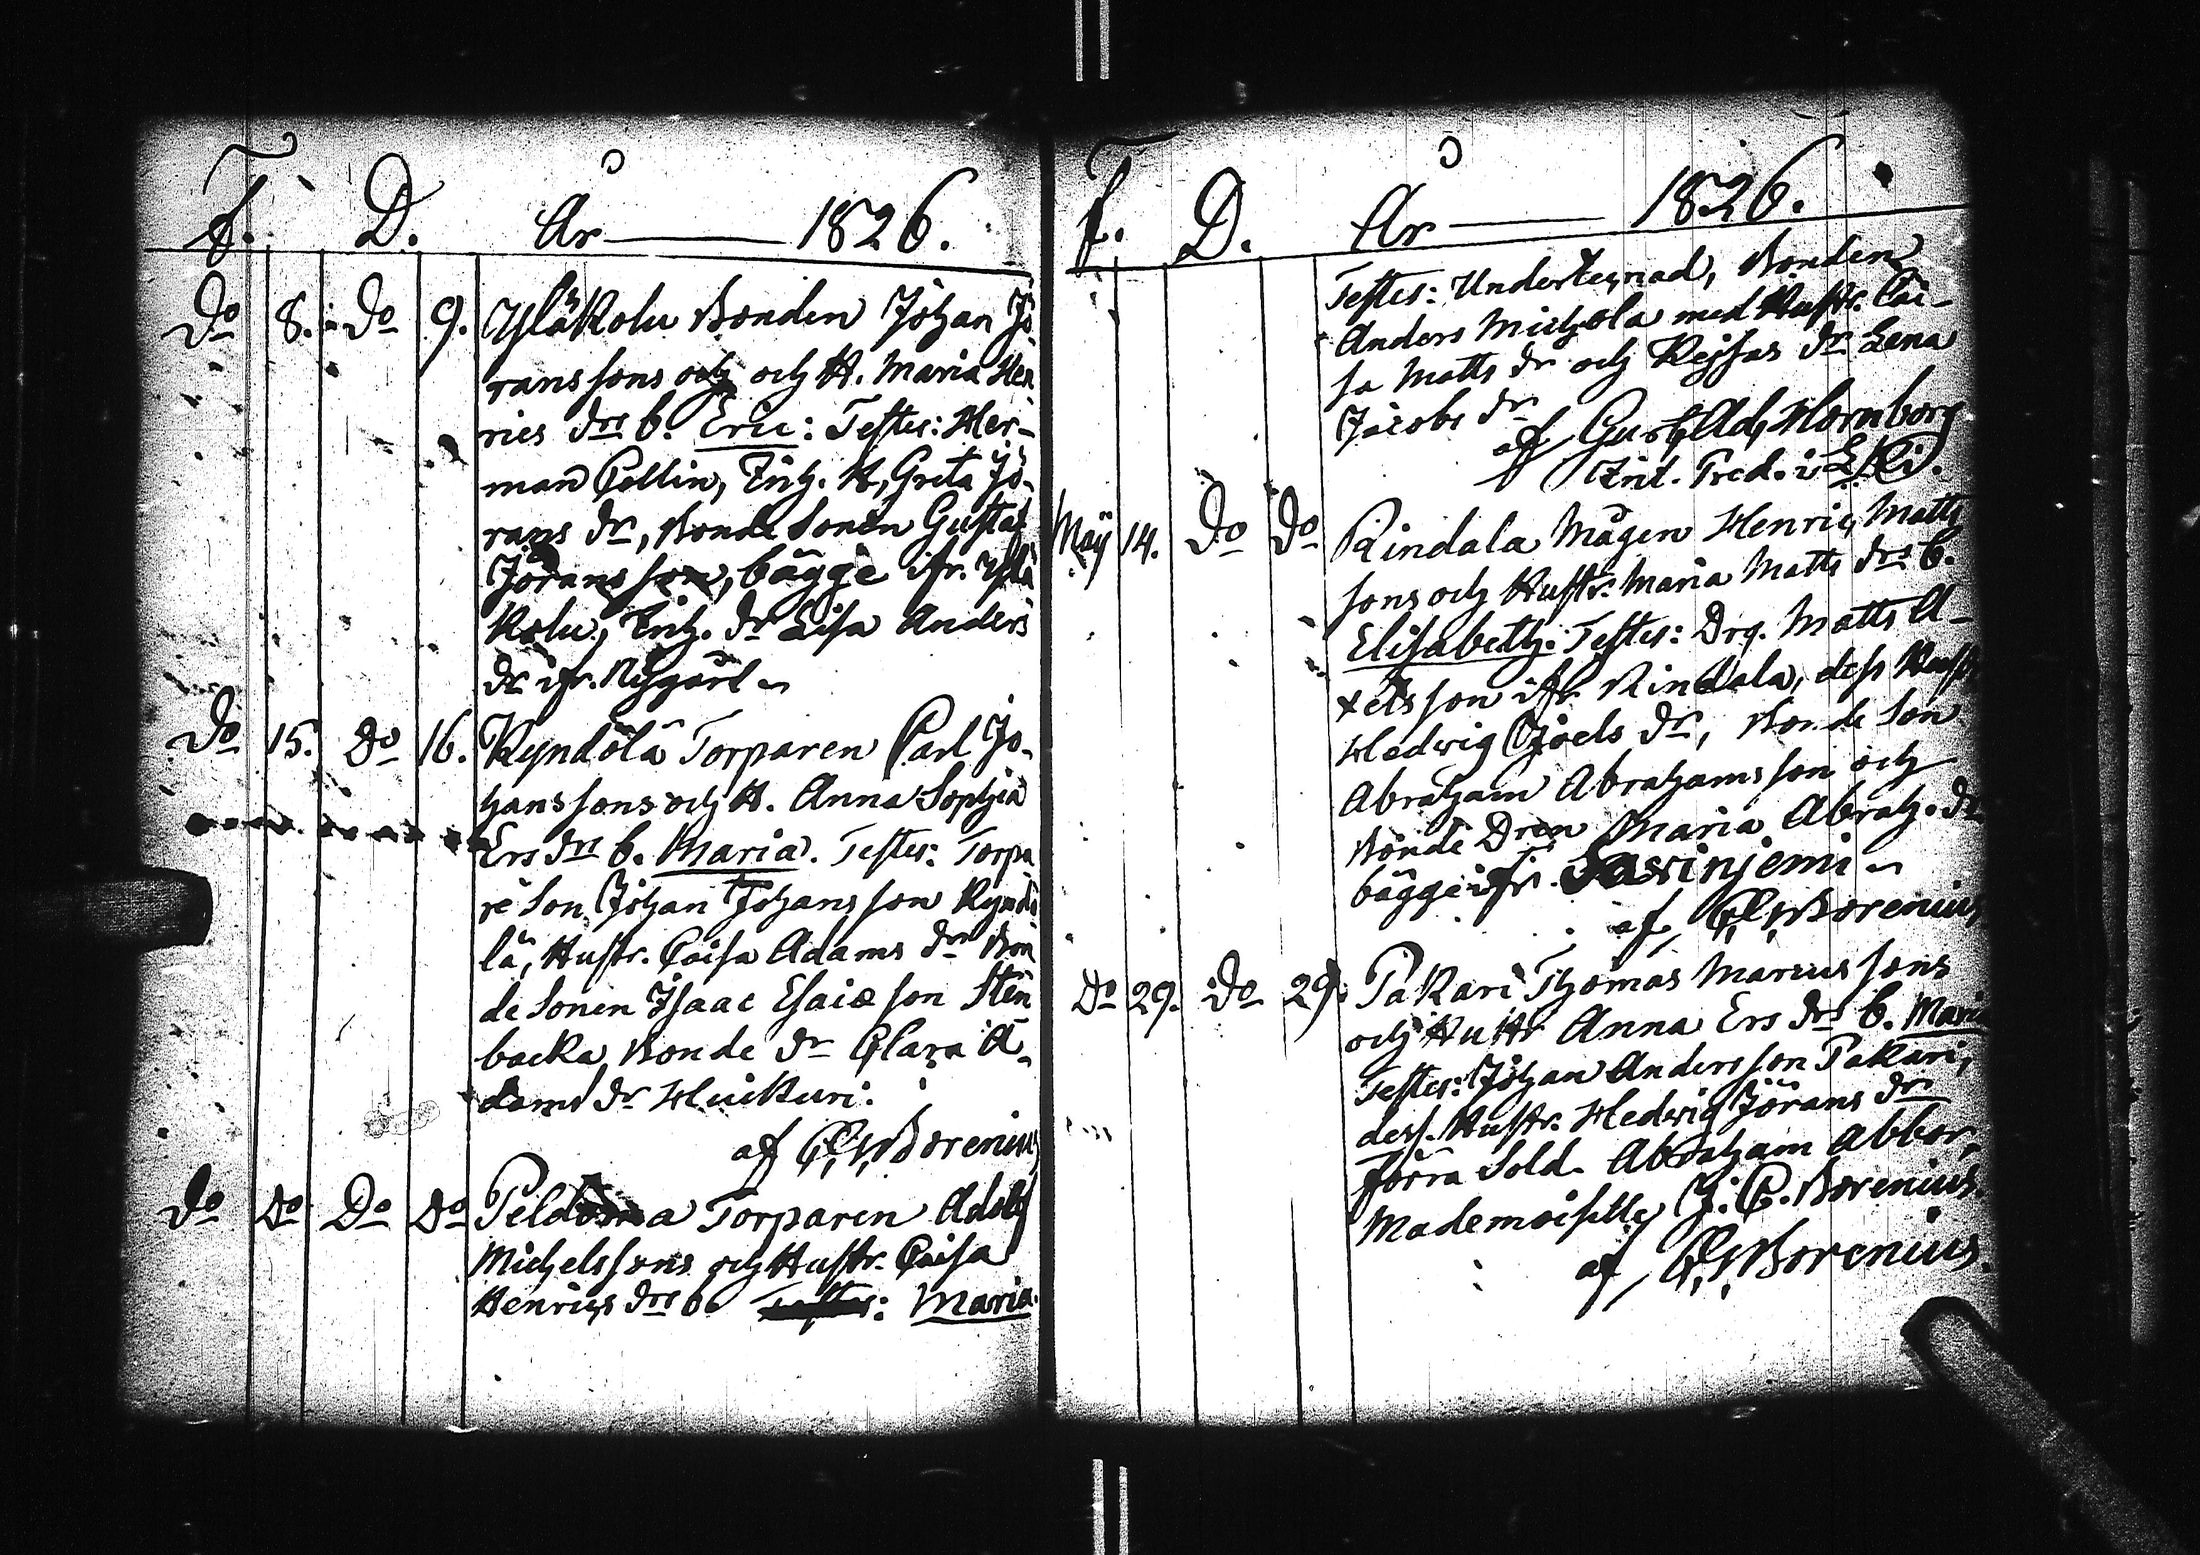 F. D. År 1826.
Do 8. Do 9. Yläkolu Bonden Johan Jö-
ranssons och och H. Maria Hen
rics drs b. Eric: Testes: Her-
man Pellin, Enk. H, Greta Jö-
rans dr, Bonde Sonen Gustaf
Jöransson, bägge ifr. Ylä
kolu, Enk. dr Lisa Anders
dr ifr. Nygård
Do 15. Do 16. Kyndölä Torparen Carl Jo-
hanssons och H. Anna Sophia
Ers drs b. Maria. Testes: Torpa
re Son Johan Johansson Kyndö
lä, Hustr. Caisa Adams dr Bon
de Sonen Isaac Esaiæson Sten
backa, Bonde dr Clara A-
dams dr Huikuri.
af C. E. Borenius
Do Do Do Do Peldoma Torparen Adolf
Michelssons och Hustr. Caisa
Henrics drs b. Testes: Maria.
F. D. År 1826.
Testes: Undertegnad, Bonden
Anders Michola med Hustr. Cai-
sa Matts dr och Rejsas dr Lena
Jacobs dr
af Gust. Ad. Hornborg
Ant. Pred. i
Maÿ 14. Do Do Rindala Mågen Henric Matts
sons och Hustr. Maria Matts drs b.
Elisabeth. Testes: Drg. Matts A-
xelsson ifr. Rindala, dess Hustr
Hedwig Joels dr, Bonde Son
Abraham Abrahamsson och
Bonde Dren Maria Abrah. dr
bägge ifr. Sarinjemi
af C. E. Borenius
Do 29. Do 29. Pakari Thomas Marcussons
och Hustr Anna Ers drs b. Maria
Testes: Johan Andersson Pakari,
dess. Hustr. Hedwig Jörans dr
förra Sold. Abraham Abbor,
Mademoiselle J. C. Borenius.
af C. E. Borenius.